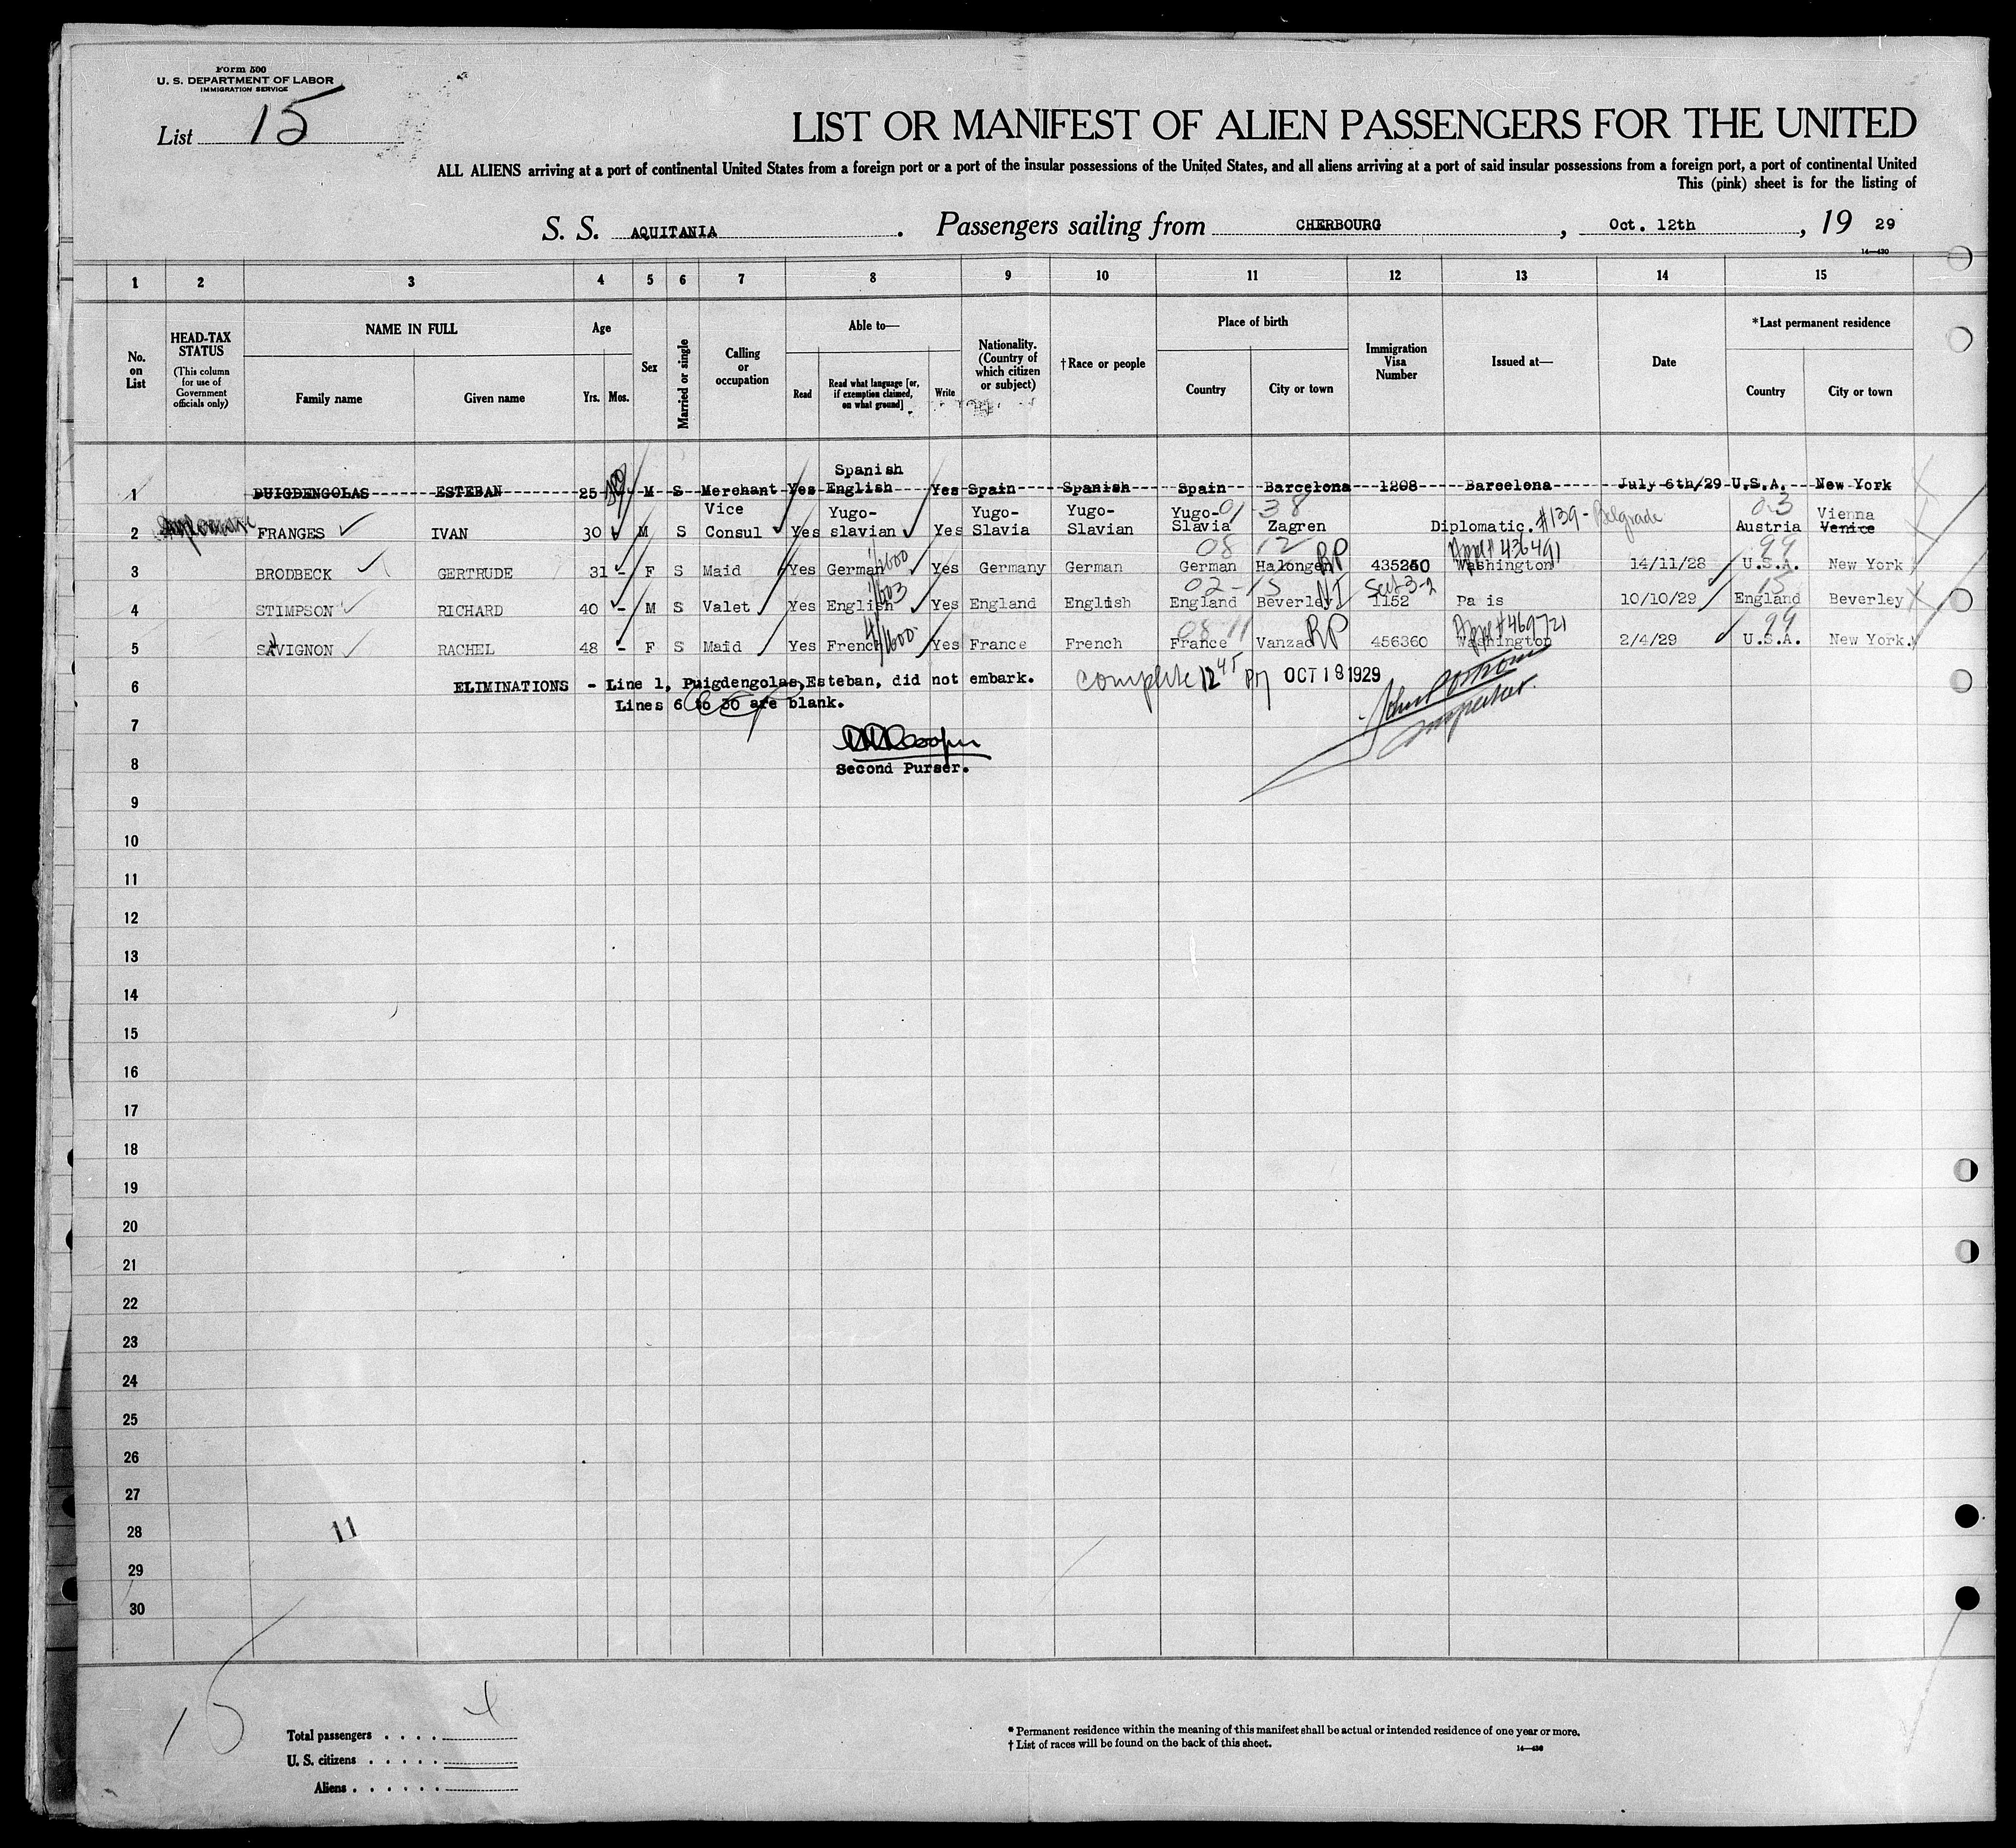 Form 500
U. S. DEPARTMENT OF LABOR
IMMIGRATION SERVICE
List 15
LIST OR MANIFEST OF ALIEN PASSENGERS FOR THE UNITED
ALL ALIENS arriving at a port of continental United States from a foreign port or a port of the insular possessions of the United States, and all aliens arriving at a port of said insular possessions from a foreign port, a port of continental United
This (pink) sheet is for the listing of
S. S. AQUITANIA. Passengers sailing from CHERBOURG, Oct. 12th, 19 29
14—430
1 2 3 4 5 6 7 8 9 10 11 12 13 14 15
No. on List
HEAD-TAX STATUS
(This column for use of Government officials only)
NAME IN FULL
Family name Given name
Age
Yrs. Mos.
Sex
Married or single
Calling or occupation
Able to—
Read
Read what language [or, if exemption claimed, on what ground]
Write
Nationality. (Country of which citizen or subject)
†Race or people
Place of birth
Country City or town
Immigration Visa Number
Issued at—
Date
*Last permanent residence
Country City or town
1 PUIGDENGOLAS ESTEBAN 25 M S Merchant Yes Spanish English Yes Spain Spanish Spain Barcelona 1208 Barcelona July 6th/29 U.S.A. New York
2 Diplomatic FRANGES IVAN 30 M S Vice Consul Yes Yugo-slavian Yes Yugo-Slavia Yugo-Slavian Yugo-Slavia 01-38 Zagren Diplomatic. #139- Belgrade 03 Austria Vienna Venice
3 BRODBECK GERTRUDE 31 - F S Maid Yes German 1/600 Yes Germany German 08 12 German Halongen RP 435240 Appl# 436491 Washington 14/11/28 99 U.S.A. New York
4 STIMPSON RICHARD 40 - M S Valet Yes English 1/603 Yes England English 02-15 England Beverley NI Sec 3-2 1152 Pa is 10/10/29 15 England Beverley
5 SAVIGNON RACHEL 48 - F S Maid Yes French 4/600 Yes France French 08 11 France Vanzac RP 456360 Appl# 469721 Washington 2/4/29 99 U.S.A. New York.
6 ELIMINATIONS - Line 1, Puigdengolas, Esteban, did not embark. complete 12 45 PM OCT 18 1929
Lines 6 to 30 are blank.
Inspector.
7
Cooper
8 Second Purser.
9
10
11
12
13
14
15
16
17
18
19
20
21
22
23
24
25
26
27
28 11
29
30
15
Total passengers . . . . 4
U. S. citizens . . . . .
Aliens . . . . . .
* Permanent residence within the meaning of this manifest shall be actual or intended residence of one year or more.
† List of races will be found on the back of this sheet.
14—430